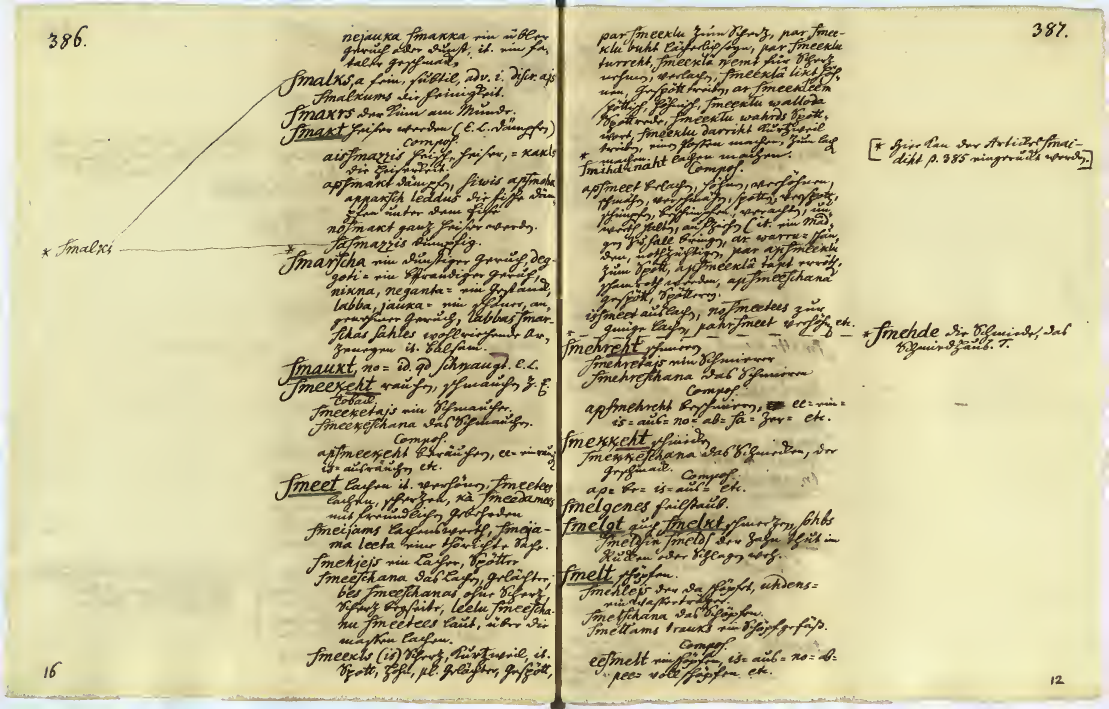 386.
nejauka smakka ein übler
geruch oder dunst, it. ein fa-
taler geschmack
smalks, a fein, subtil, adv. i. discr. ajs
smalkums die feinigkeit.
smakrs der Kinn am Munde.
smakt heiser werden (E.L. dämpfen)
Compos.
aissmazzis heisch, heiser, = kakls
die heiserkeit.
apsmakt dämpfen, siwis apsmaka
apparksch leddus die fische
unter dem Eise
nosmakt ganz heiser werden.
sasmazzis dumpfig.
* smalki
* smarscha ein dunstiger geruch, deg-
goti= ein brandiger geruch,
nikna, neganta= ein gestank,
labba, jauka= ein schöner, an-
genehmer geruch, labbas smar-
schas sahles wohlriechende Ar-
zeneyen it. balsam.
smaukt, no= id. qd schnaugt. E.L.
smeekeht rauchen, schmauchen z. E.
Toback.
smeeketajs ein Schmaucher.
smeekeschana das Schmauchen.
Compos.
apsmeekeht beräuchern, ee= einräuch
is= ausräuchern etc.
smeet lachen it. verhönen, smeetees
lachen, scherzen, kà smeedamees
mit freundlichen gebehrden
smeijams lachenswerth, smeija-
ma leeta eine thörichte Sache.
smehjejs ein Lacher, Spötter
smeeschana das Lachen, gelächter,
bes smeeschanas ohne Scherz,
Scherz beyseite, leelu smeescha-
nu smeetees laut, über die
massen lachen.
smeekls (is) Scherz, Kurtzweil, it.
Spott, Hohn, pl. Gelächter, Gespött,
16
387.
par smeeklu zum Scherz, par smee-
klu buht lächerlich seyn, par smeeklu
turreht, smeeklà nemt für Scherz
nehmen, verlachen, smeeklà likt
Gespött treiben, ar smeekleem
spöttisch, höhnisch, smeeklu walloda
Spottrede, smeeklu wahrds Spott-
wort, smeeklu darriht Kurtzweil
treiben, einen possen machen, zum lachen
machen.
* smihdinaht lachen machen.
Compos.
apsmeet belachen, höhnen, verhöhnen,
schmähen, verschmähen, spotten, verspotten,
schimpfen, beschimpfen, verachten,
werth halten, (it. ein Mäd-
gen zu fall bringen,
nothzüchtigen, par apsmeeklu
zum Spott, apsmeeklà tapt
werden, apsmeeschana
gespött, Spötterey.
issmeet auslachen, nosmeetees zur
gnüge lachen, pahrsmeet verhöhnen etc.
[* hier kan der Articul smai-
diht p. 385 eingerückt werden.]
* smehde die Schmiede, das
Schmiedhaus. T.
smehreht schmieren
smehretajs ein Schmierer
smehreschana das Schmieren
Compos.
apsmehreht beschmieren, ee= ein=
is= aus= no= ab= sa= zer= etc.
smekkeht schmecken
smekkeschana das Schmecken, der
Geschmack.
Compos.
ap= be= is= aus= etc.
smelgenes feilstaub.
smelgt auch smelkt schmerzen, sohbs
der Zahn thut im
Rücken oder Schlagen weh.
smelt schöpfen.
smehlejs der da schöpfet, uhdens=
ein wasserträger.
smelschana das Schöpfen.
smellams trauks ein Schöpfgefäss.
Compos.
eesmelt einschöpfen, is= aus= no= ab=
pee= voll schöpfen etc.
12